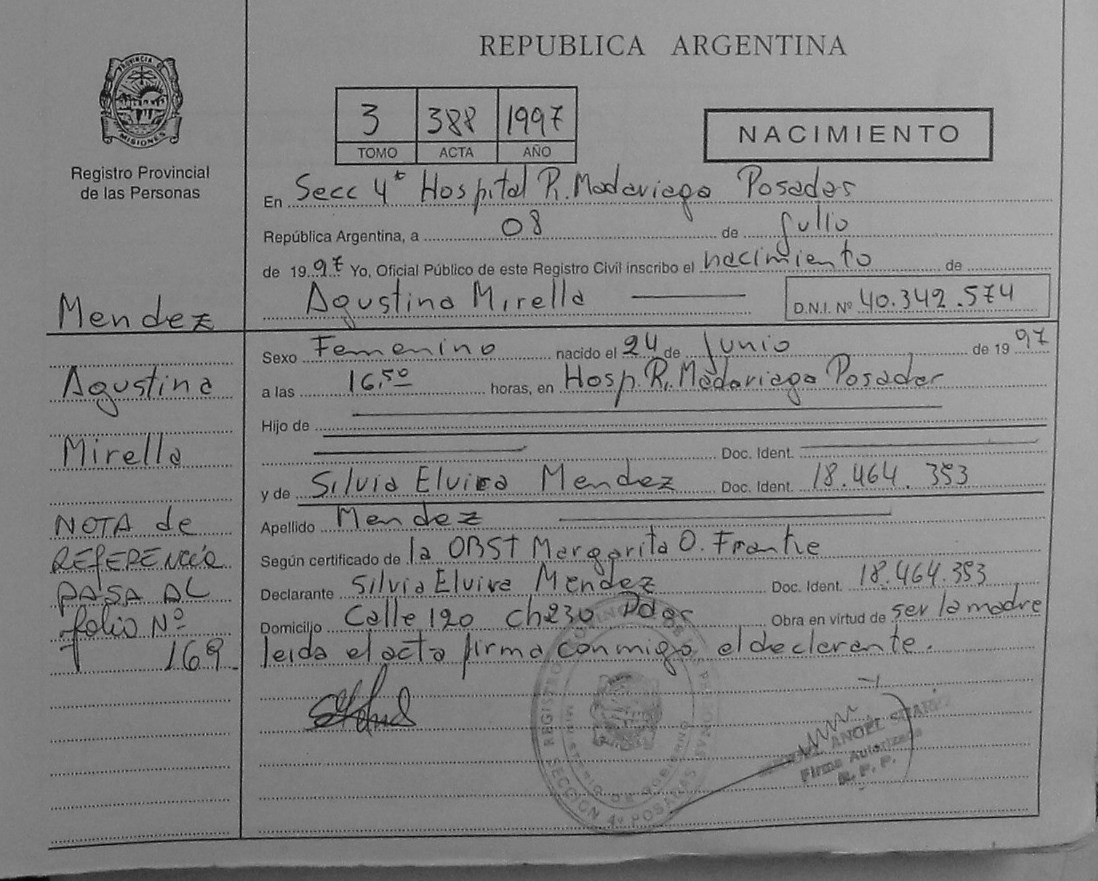 REPUBLICA ARGENTINA
PROVINCIA DE MISIONES
Registro Provincial
de las Personas
3 388 1997
TOMO ACTA AÑO
NACIMIENTO
En Secc 4ª Hospital R. Madariaga Posadas
República Argentina, a 08 de Julio
de 19 97 Yo, Oficial Público de este Registro Civil inscribo el nacimiento de
Agustina Mirella D.N.I. Nº 40.342.574
Mendez
Agustina
Mirella
NOTA de
REFERENCIA
PASA AL
folio Nº
169
Sexo Femenino nacido el 24 de Junio de 19 97
a las 16,50 horas, en Hosp. R. Madariaga Posadas
Hijo de
Doc. Ident.
y de Silvia Elvira Mendez Doc. Ident. 18.464.353
Apellido Mendez
Según certificado de la OBST Margarita O.
Declarante Silvia Elvira Mendez Doc. Ident. 18.464.353
Domicilio Calle 120 ch230 Pdas Obra en virtud de ser la madre
leida el acta firma conmigo el declarante.
REGISTRO PROVINCIAL DE LAS PERSONAS
MINISTERIO DE GOBIERNO
SECCION 4ª POSADAS
ANGEL
Firma Autorizada
R. P. P.